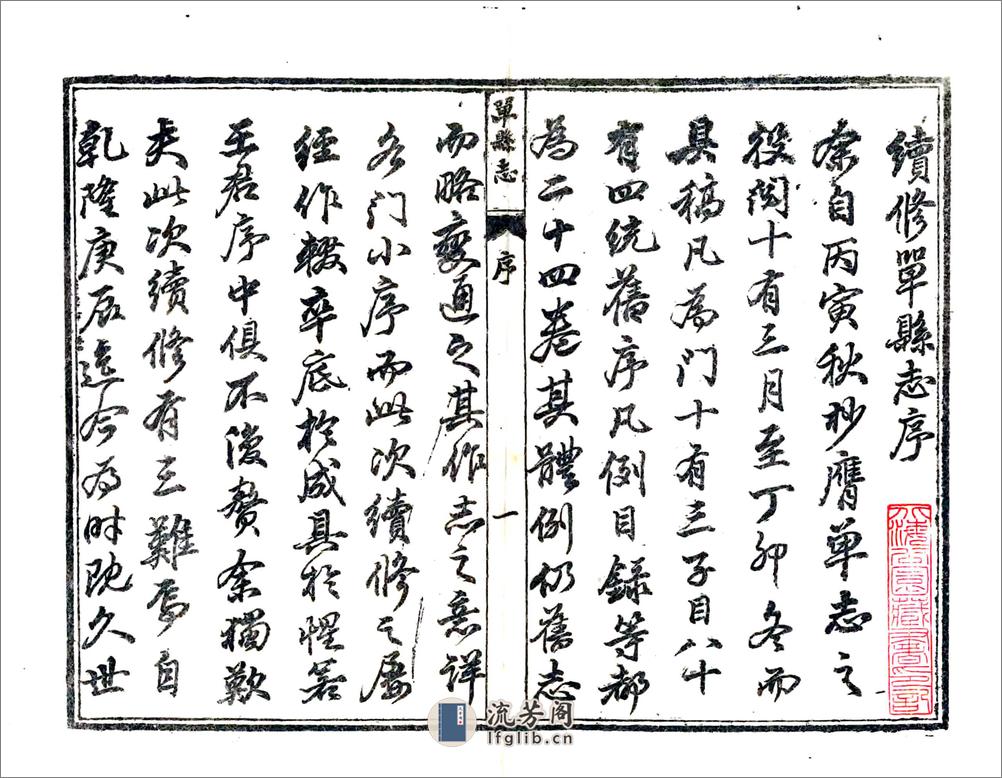 續修單縣志序
余自丙寅秋杪膺单志之
役閱十有三月至丁卯冬而
具稿凡為门十有三子目八十
有四统舊序凡例目錄等都
為二十四卷其體例仍舊志
單縣志 序 一
而略變通之其作志之意详
各门小序而此次續修之屡
经作輟卒底於成具於惺若
王君序中俱不復贅余獨歎
夫此次續修有三難焉自
乾隆庚辰迄今为时既久世
流芳阁
lfglib.cn